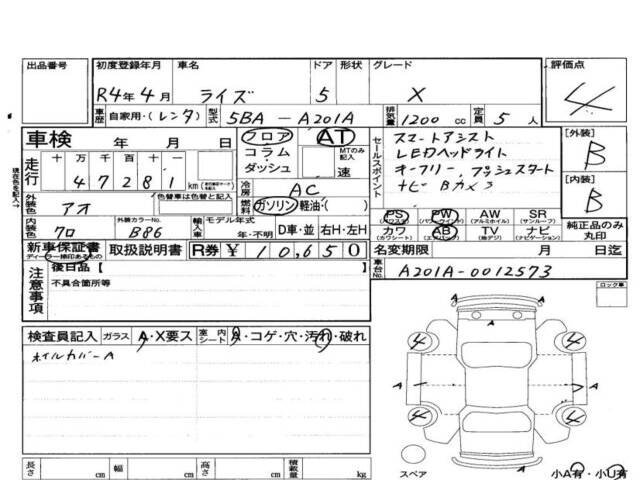 出品番号 初度登録年月 車名 ドア 形状 グレード 評価点
R4年4月 ライズ 5 X 4
車歴 自家用・(レンタ) 型式 5BA-A201A 排気量 1200cc 定員 5人
車検 年 月 日 フロア AT セールスポイント スマートアシスト [外装]
コラム・ダッシュ MTのみ記入 速 LEDヘッドライト B
現在色を記入→ 走行 十 万 千 百 十 一 オートフリー プッシュスタート
4 7 2 8 1 km 冷房 AC ナビ Bカメラ [内装]
外装色 アオ 色替車は色替と記入 燃料 ガソリン・軽油・( ) B
PS (パワステ) PW (パワーウインドウ) AW (アルミホイル) SR (サンルーフ) 純正品のみ丸印
内装色 クロ 外装カラーNo. B86 輸入車 モデル年式 年・不明 D車・並 右H・左H カワ (カワシート) AB (エアバック) TV (地デジ) ナビ (ナビゲーション)
新車保証書 ディーラー捺印あるもの 取扱説明書 R券 ¥10,650 名変期限 月 日迄
注意事項 後日品【 】 車台No. A201A-0012573
不具合箇所等 ロック車
検査員記入 ガラス A・X要ス 室内シート A・コゲ・穴・汚れ・破れ
ホイルカバーA
A
4 4
A A A
4 4
スペア
長さ cm 幅 cm 高さ cm 積載量 kg 小A有・小U有